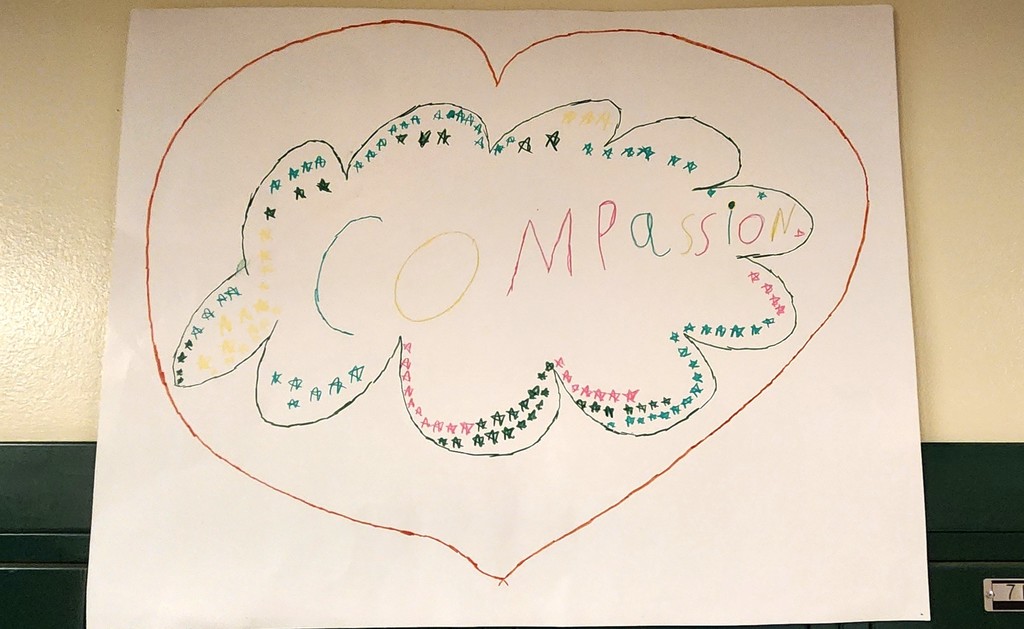 COMPassioN
7